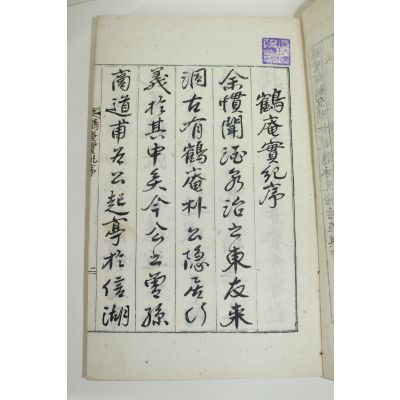 鶴庵實紀序
余慣聞酒泉治之東友來
洞古有鶴庵朴公隱居行
義於其中矣今公之曾孫
商道甫爲公起亭於信湖
鶴菴實紀序